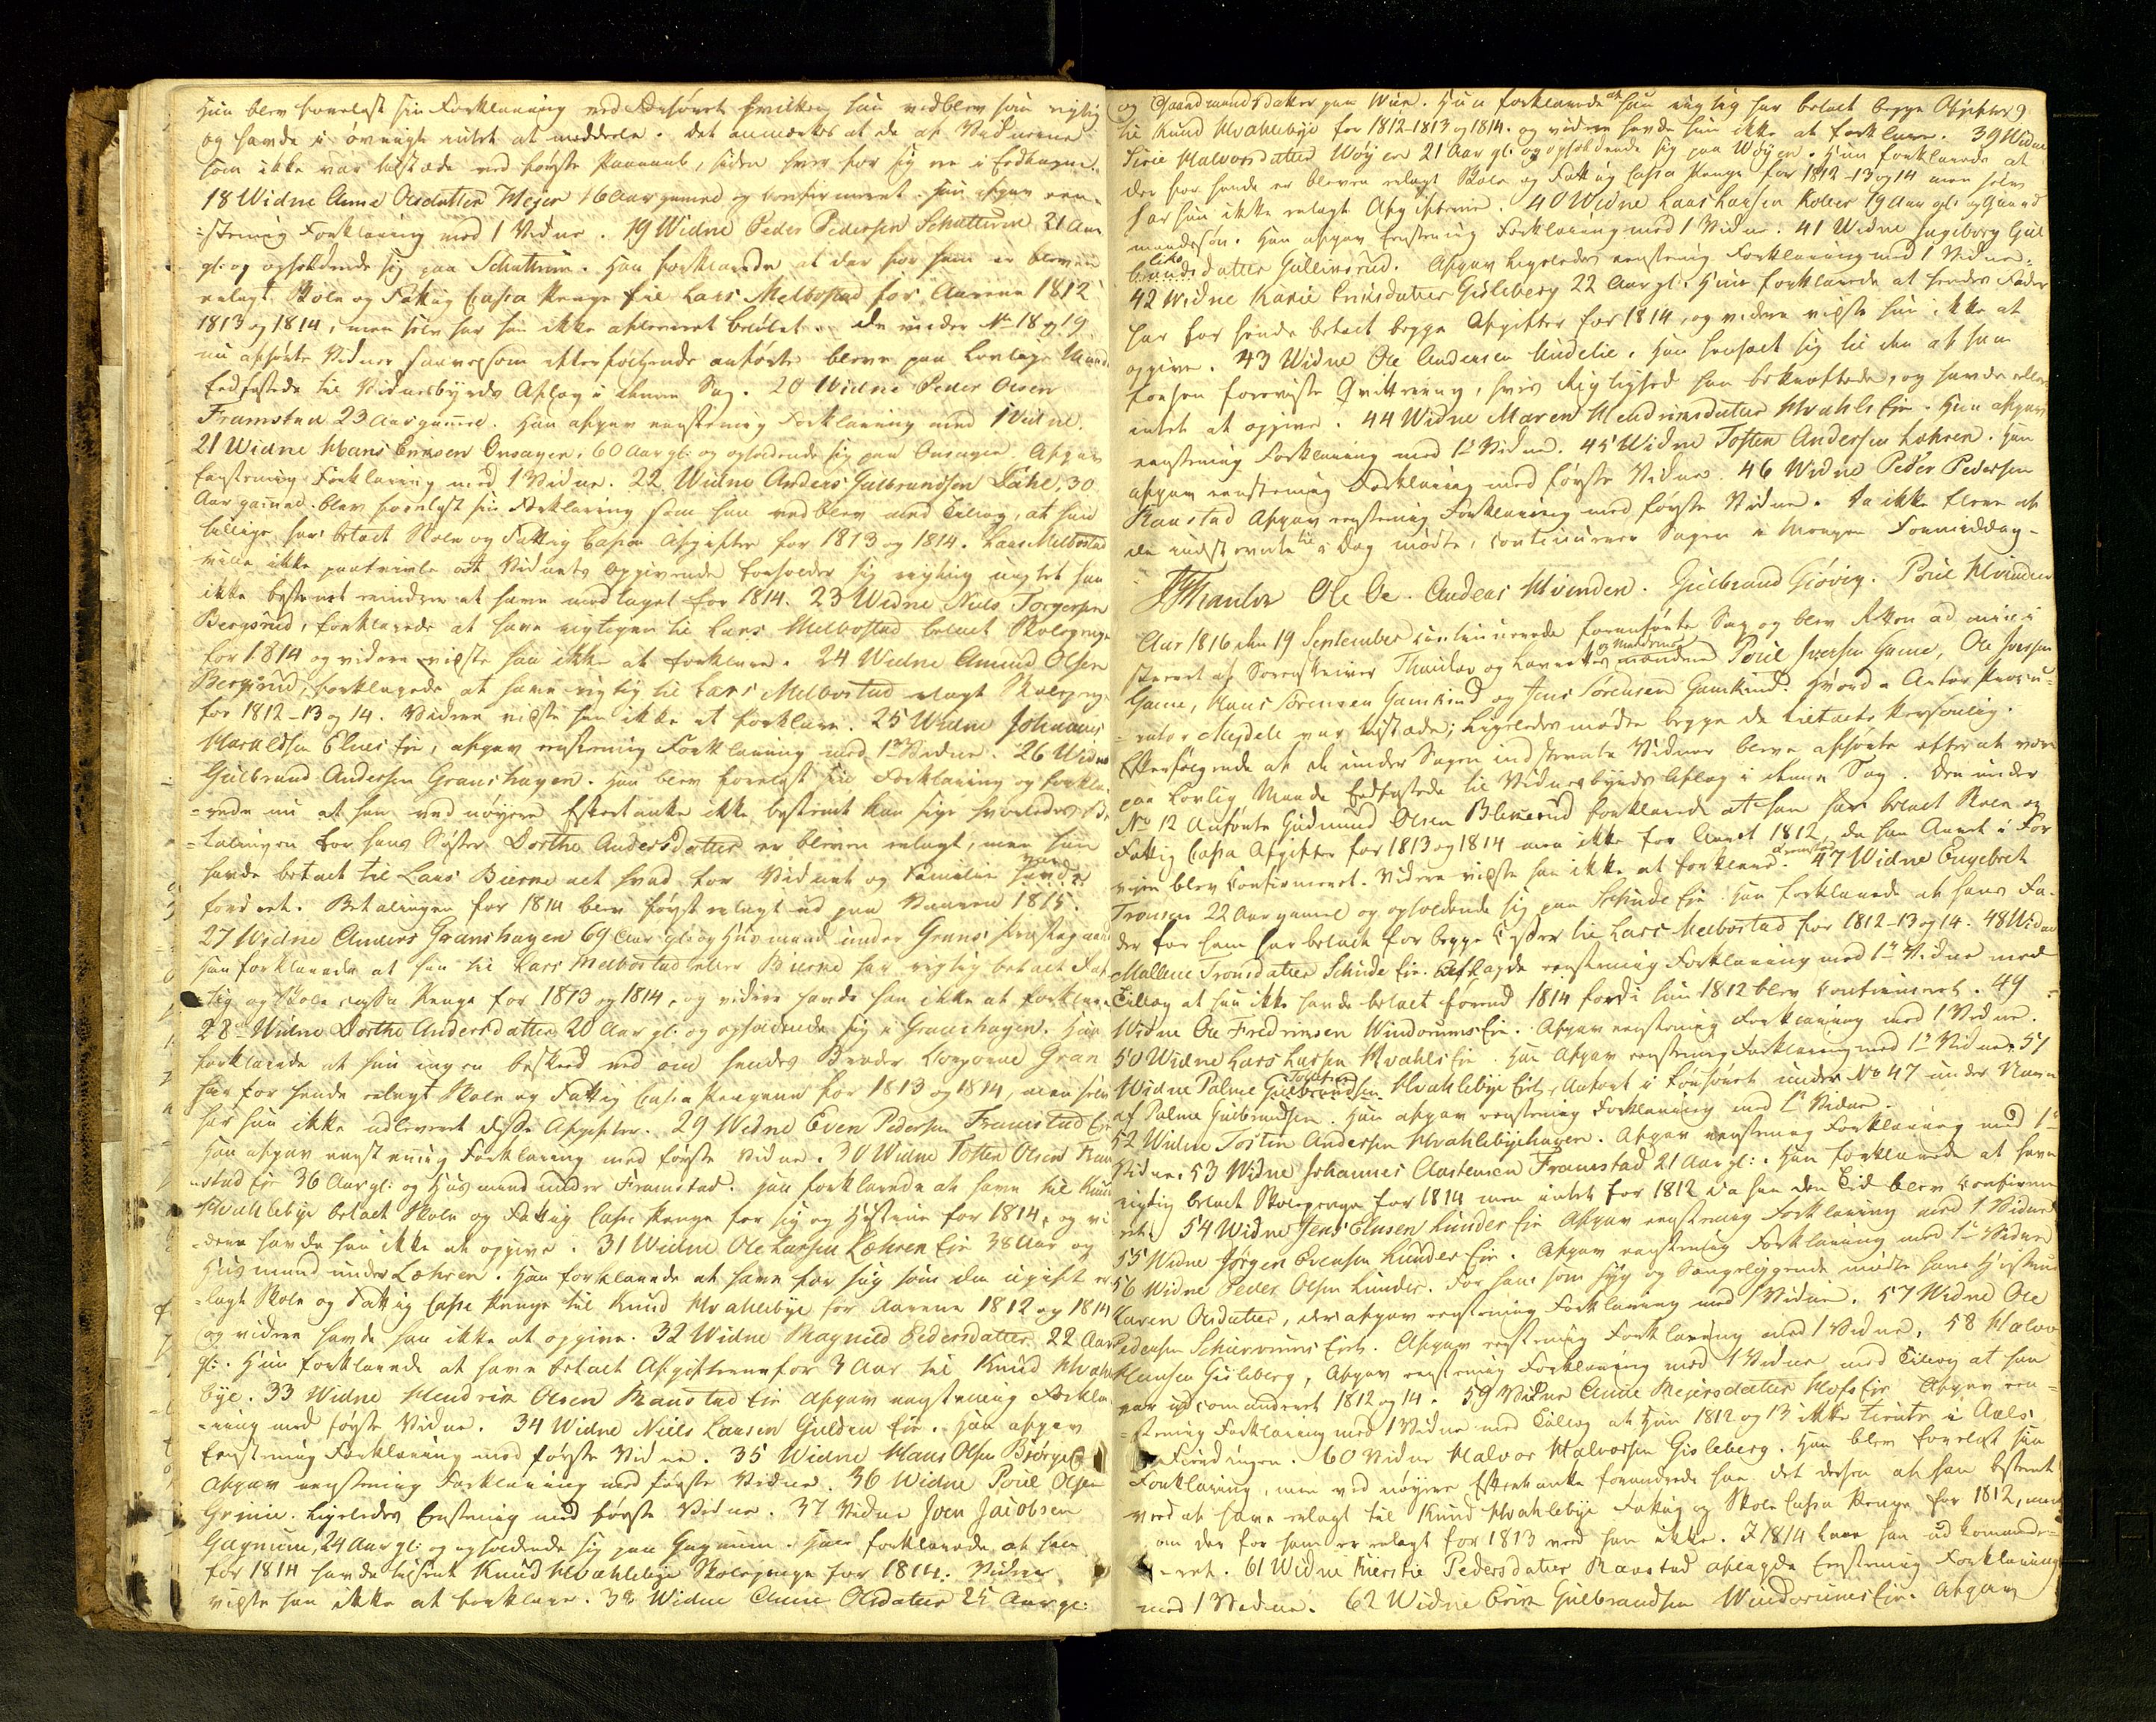 Hun blev forelæst sin Forklaring ved Forhøret hvilken hun vedblev som rigtig
og havde i øvrigt intet at meddele. Det anmærkes at de af Vidnerne
som ikke var tilstæde ved første Paaraab, siden hver for sig ere i Eed tagne.
18 Widne Anne Olsdatter Mejer 16 Aar gammel og confirmeret. Hun afgav een-
-stemig Forklaring med 1 Vidne. 19 Widne Peder Pedersen Schutterrn 21 Aar
gl. og opholdende sig paa Schutterrn. Han forklarede at der for ham er bleven
erlagt Skole og Fattig Cassa Penge til Lars Melbostad for Aarene 1812
1813 og 1814, men selv har han ikke afleveret beløbet. De under No 18 og 19
nu afhørte Vidner saavelsom efterfølgende anførte bleve paa Lovlige Maade
Eedfæstede til Vidnesbyrds Aflæg i denne Sag. 20 Widne Peder Olsen
Framstad 23 Aar gammel. Han afgav eenstemig Forklaring med 1 Vidne.
21 Widne Hans Ericsen Onsagen, 60 Aar gl. og opholdende sig paa Onsagen. Afgav
Eenstemig Forklaring med 1 Vidne. 22 Widne Anders Gulbrandsen Dæhl, 30
Aar gammel blev forelæst sin Forklaring som han vedblev med Tillæg, at han
tillige har betalt Skole og Fattig Cassa Afgifter for 1813 og 1814. Lars Melbostad
ville ikke paatvivle at Vidnets Opgivende forholder sig rigtig uagtet han
ikke bestemt erindrer at have modtaget for 1814. 23 Widne Niels Torgersen
Bergsrud, forklarede at have rigtigen til Lars Melbostad betalt Skolepenge
for 1814 og videre vidste han ikke at forklare. 24 Widne Amund Olsen
Bergsrud, forklarede at have rigtig til Lars Melbostad erlagt Skolepenge
for 1812-13 og 14. Videre vidste han ikke at forklare. 25 Widne Johannes
Haraldsen Elnes Eje, afgav eenstemig Forklaring med 1te Vidne. 26 Widne
Gulbrand Andersen Granshagen. Han blev forelæst sin Forklaring og forkla-
-rede nu at han ved nøyere Eftertanke ikke bestemt kan sige hvorledes Be-
-talingen for hans Søster Dorthe Andersdatter er bleven erlagt, men hun
havde betalt til Lars Bierne alt hvad for Vidnet og Familie havde
fordret. Betalingen for 1814 blev først erlagt ud paa Vaaren 1815.
27 Widne Anders Granshagen 69 Aar gl. og Huusmand under Grans Præstegaard
han forklarede at han til Lars Melbostad eller Bierne har rigtig betalt Fat-
tig og Skole Cassa Penge for 1813 og 1814, og videre havde han ikke at forklare
28de Widne Dorthe Andersdatter 20 Aar gl. og opholdende sig i Granshagen. Hun
forklarede at hun ingen beskeed ved om hendes Broder Corporal Gran
har for hende erlagt Skole og Fattig Cassa Pengene for 1813 og 1814, men selv
har hun ikke udleveret disse Afgifter. 29 Widne Even Pedersen Framstad Eje
Han afgav eenstemmig Forklaring med første Vidne. 30 Widne Tosten Olsen Fram-
-stad Eje 36 Aar gl. og Huusmand under Framstad. Han forklarede at have til Knud
Hvahlebye betalt Skole og Fattig Casse Penge for sig og Hustrue for 1814, og vi-
-dere havde han ikke at opgive. 31 Widne Ole Larsen Løhren Eje 38 Aar og
Huusmand under Løhren. Han forklarede at have for sig som den ugift er-
-lagt Skole og Fattig Casse Penge til Knud Hvahlebye for Aarene 1812 og 1814
og videre havde han ikke at opgive. 32 Widne Magnild Pedersdatter 22 Aar
gl. Hun forklarede at have betalt Afgifterne for 3 Aar til Knud Hvahle
bye. 33 Widne Hendrik Olsen Ranstad Eje afgav eenstemig Forkla-
-ring med første Vidne. 34 Widne Niels Larsen Gulden Eje. Han afgav
Eenstemig Forklaring med første Vidne. 35 Widne Hans Olsen Biørge
Afgav eenstemig Forklaring med første Vidne. 36 Widne Poul Olsen
Grinie. Ligeledes Eenstemig med første Vidne. 37 Vidne Joen Jacobsen
Gagnum, 24 Aar gl. og opholdende sig paa Gagnum. Han forklarede at han
for 1814 havde tilsendt Knud Hvahlebye Skolepenge for 1814. Videre
vidste han ikke at forklare. 38 Widne Anne Olsdatter 25 Aar gl:
og Gaardmandsdatter paa Wien. Hun forklarede at hun rigtig har betalt begge Afgifter
til Knud Hvahlebye for 1812-1813 og 1814. og videre havde hun ikke at forklare. 39 Widne
Sirie Halvorsdatter Wøyen 21 Aar gl. og opholdende sig paa Wøyen. Hun forklarede at
der for hende er bleven erlagt Skole og Fattig Cassa Penge for 1812-13 og 14 men selv
har hun ikke erlagt Afgifterne. 40 Widne Lars Larsen Koller 19 Aar gl. og Gaard
mandssøn. Han afgav Eenstemig Forklaring med 1 Vidne. 41 Widne Ingeborg Gul
brandsdatter Gullinsrud. Afgav ligeledes eenstemig Forklaring med 1 Vidne.
42 Widne Karie Ericsdatter Gisleberg 22 Aar gl. Hun forklarede at hendes Fader
har for hende betalt begge Afgifter for 1814, og videre vidste hun ikke at
opgive. 43 Widne Ole Andersen Undelie. Han henholdt sig til den af ham
forhen foreviste Qvittering, hvis Rigtighed han bekræftede, og havde ellers
intet at opgive. 44 Widne Maren Hendrichsdatter Hvahls Eje. Hun afgav
eenstemig Forklaring med 1te Vidne. 45 Widne Tosten Andersen Løhren. Han
afgav eenstemig Forklaring med første Vidne. 46 Widne Peder Pedersen
Ranstad Afgav eenstemig Forklaring med første Vidne. Da ikke flere af
de indstevnte til i Dag mødte, continuerer Sagen i Morgen Formiddag-
Thaulov Ole Oe. Andeas Hvinden. Gulbrand Giøvig. Poul Hvinden
Aar 1816 den 19 September continuerede foranførte Sag og blev Retten ad mini-
streret af Sorenskriver Thaulov og Laurettes mændene Poul Iversen Game, Ole Iversen
Game, Hans Sørensen Gamkind og Jens Sørensen Gamkind. Hvorda Actor Procu-
-rator Mejdell var tilstæde; ligeledes mødte begge de tiltalte Personlig.
Efterfølgende af de under Sagen indstevnte Vidner bleve afhørte efter at være
paa Lovlig Maade Eedfæstede til Vidnesbyrds Aflæg i denne Sag. Den under
No 12 Anførte Gudmund Olsen Blekerud forklarede at han har betalt Skole og
Fattig Cassa Afgifter for 1813 og 1814 men ikke for Aaret 1812, da han Aaret i For
vejen blev Confirmeret. Videre vidste han ikke at forklare. 47 Widne Engebreth
Tronsen 22 Aar gammel og opholdende sig paa Schinde Eje. Han forklarede at hans Fa-
der for ham har betalt for begge Casser til Lars Melbostad for 1812-13 og 14. 48 Widne
Mallene Tronsdatter Schinde Eje. Aflagde eenstemig Forklaring med 1te Vidne med
Tillæg at hun ikke havde betalt førend 1814 fordi hun 1812 blev Confirmeret. 49
Widne Ole Fredrichsen Windorums Eje. Afgav eenstemig Forklaring med 1 Vidne.
50 Widne Lars Larsen Hvahls Eje. Han Afgav eenstemig Forklaring med 1te Vidne. 51
Widne Palme Gulbrandsen Hvahlebye Eje, Anført i Forhøret under No 47 under Navn
af Palme Gulbrandsen. Han afgav eenstemig Forklaring med 1te Vidne-
52 Widne Tosten Andersen Hvahlebyehagen. Afgav eenstemig Forklaring med 1te
Vidne. 53 Widne Johannes Aastensen Framstad 21 Aar gl. Han forklarede at have
rigtig betalt Skolepenge for 1814 men intet for 1812 da han den Tid blev Confirme
ret. 54 Widne Jens Elnsen Lunder Eje Afgav eenstemig Forklaring med 1 Vidne
55 Widne Jørgen Evensen Lunder Eje. Afgav eenstemig Forklaring med 1te Vidne
56 Widne Peder Olsen Lunder. For ham som syg og Sengeliggende mødte hans Hustrue
Karen Olsdatter, der afgav eenstemig Forklaring med 1 Vidne. 57 Widne Ole
Pedersen Schiarvums Eje. Afgav eenstemig Forklaring med 1 Vidne. 58 Halvor
Hansen Gisleberg, Afgav eenstemig Forklaring med 1 Vidne med Tillæg at han
var udcomanderet 1812 og 14. 59 Vidne Anne Mejersdatter Hofs Eje Afgav een-
-stemig Forklaring med 1 Vidne med Tillæg at Hun 1812 og 13 ikke tiente i Aals
Fierdingen. 60 Vidne Halvor Halvorsen Gisleberg. Han blev forelæst sin
Forklaring, men ved nøyere Eftertanke forandrede han det derhen at han bestemt
veed at have erlagt til Knud Hvahlebye Fattig og Skole Cassa Penge for 1812, men
om der for ham er erlagt for 1813 veed han ikke. I 1814 var han udkomande-
-ret. 61 Widne Kierstie Pedersdatter Ranstad aflagde Eenstemig Forklaring
med 1 Vidne. 62 Widne Erik Gulbrandsen Windorums Eje. Afgav